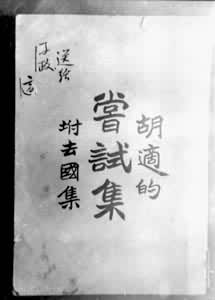 胡適的
嘗試集
坿去國集
送給
子政
適